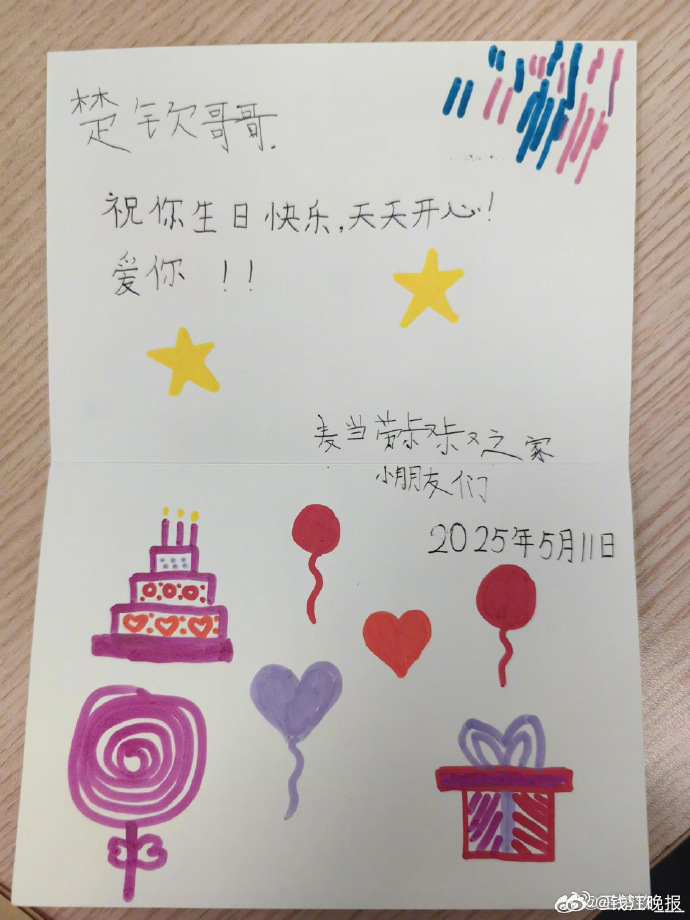 楚钦哥哥.
祝你生日快乐,天天开心!
爱你 !!
麦当劳叔叔之家
小朋友们
2025年5月11日
@钱江晚报